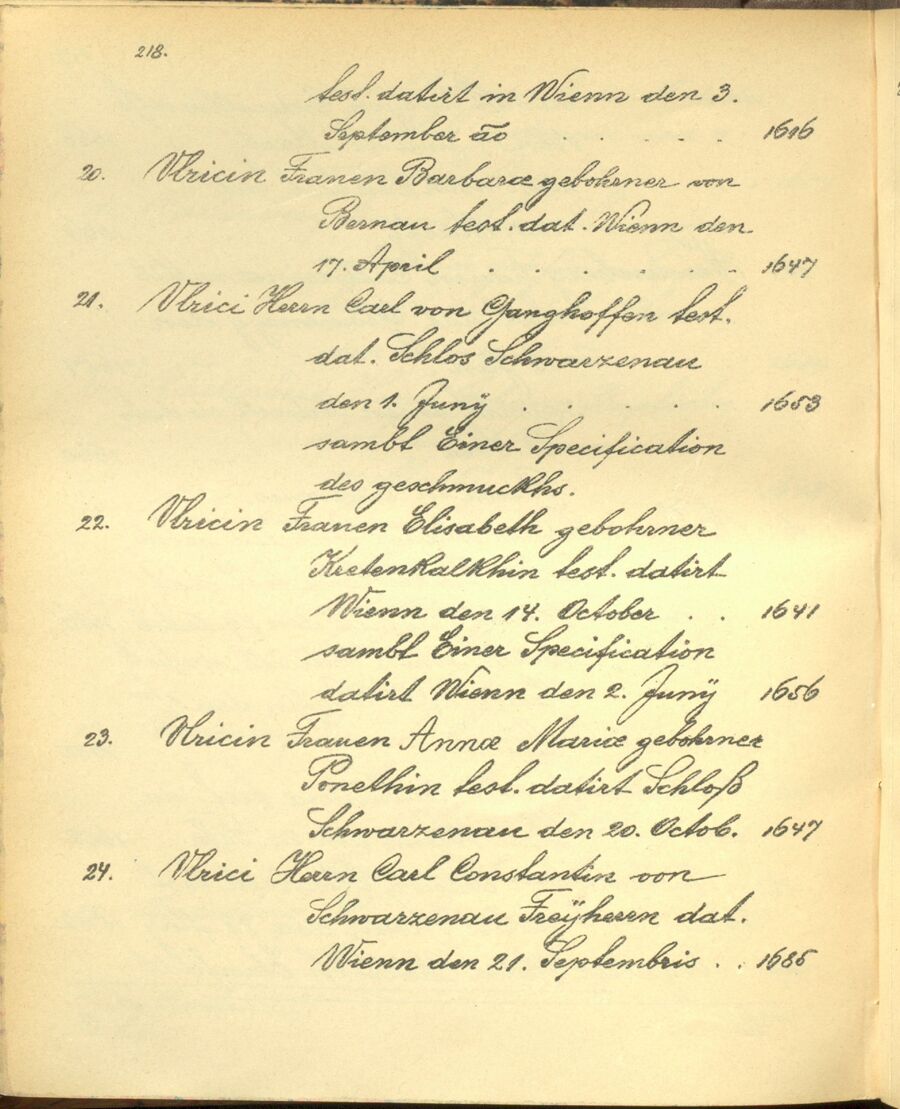 218.
test. datirt in Wienn den 3.
September ão . . . . . 1616
20. Vlricin Frauen Barbaræ gebohrner von
Bernau test. dat. Wienn den
17. April . . . . . . 1647
21. Vlrici Herrn Carl von Ganghoffen test.
dat. Schlos Schwarzenau
den 1. Junÿ . . . . . 1653
sambt Einer Specification
des geschmuckhs.
22. Vlricin Frauen Elisabeth gebohrner
Kretenkalkhin test. datirt
Wienn den 14. October . . 1641
sambt Einer Specification
datirt Wienn den 2. Junÿ 1656
23. Vlricin Frauen Annæ Mariæ gebohrner
Ponethin test. datirt Schloß
Schwarzenau den 20. Octob. 1647
24. Vlrici Herrn Carl Constantin von
Schwarzenau Freÿherrn dat.
Wienn den 21. Septembris . . 1685